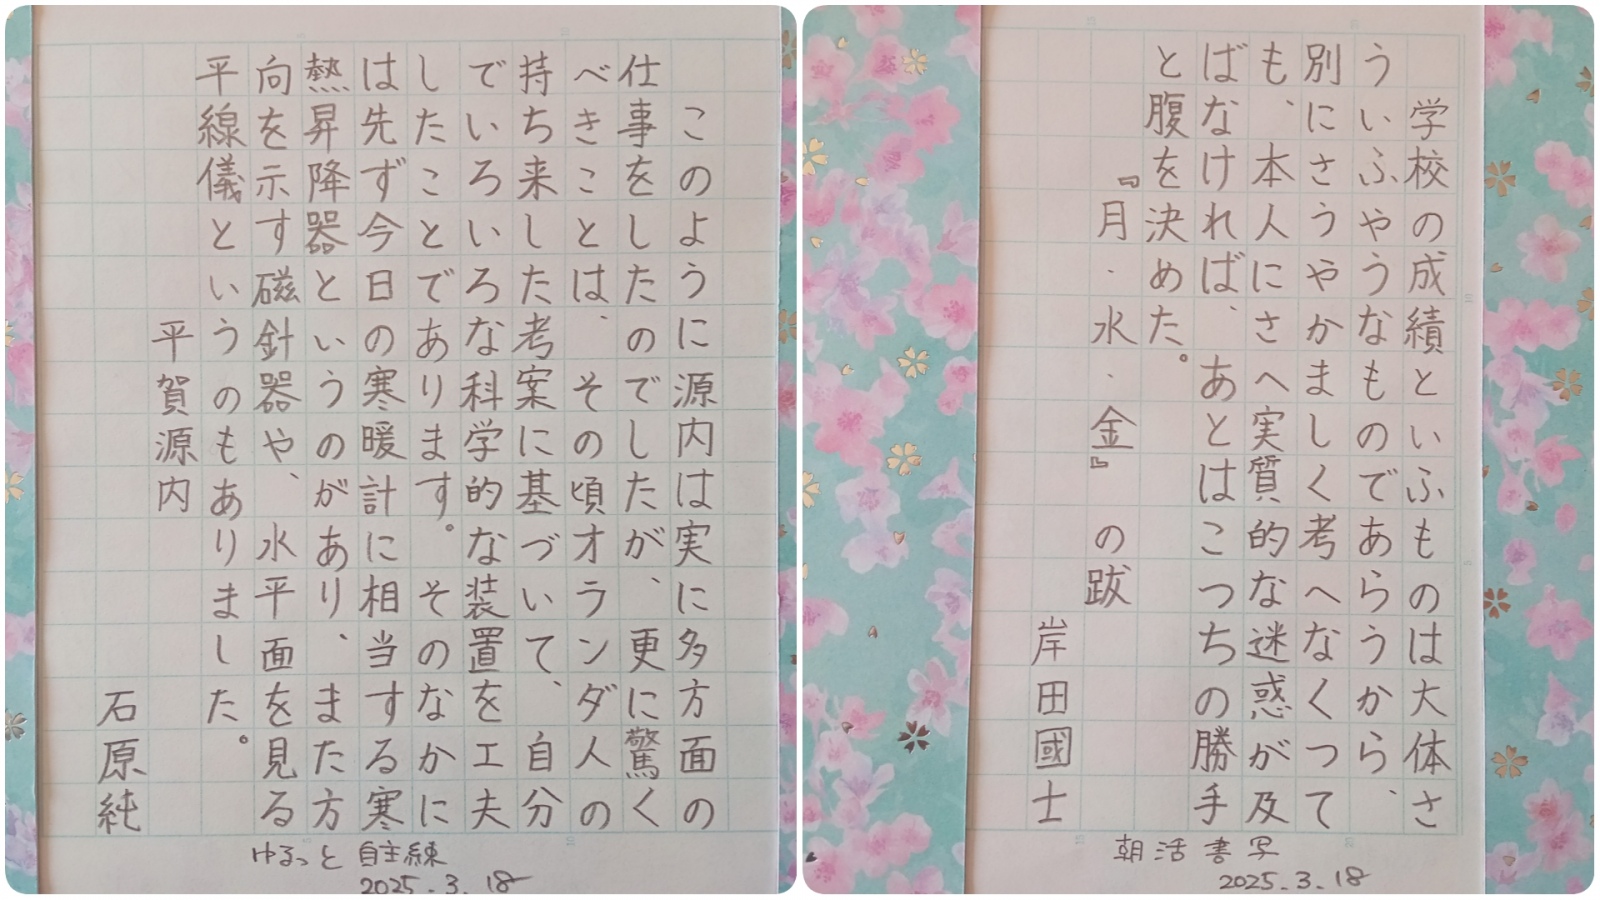 学校の成績といふものは大体さ
ういふやうなものであらうから、
別にさうやかましく考へなくつて
も、本人にさへ実質的な迷惑が及
ばなければ、あとはこつちの勝手
と腹を決めた。
『月・水・金』の跋
岸田國士
朝活書写
2025.3.18
このように源内は実に多方面の
仕事をしたのでしたが、更に驚く
べきことは、その頃オランダ人の
持ち来した考案に基づいて、自分
でいろいろな科学的な装置を工夫
したことであります。そのなかに
は先ず今日の寒暖計に相当する寒
熱昇降器というのがあり、また方
向を示す磁針器や、水平面を見る
平線儀というのもありました。
平賀源内
石原純
ゆるっと自主練
2025.3.18